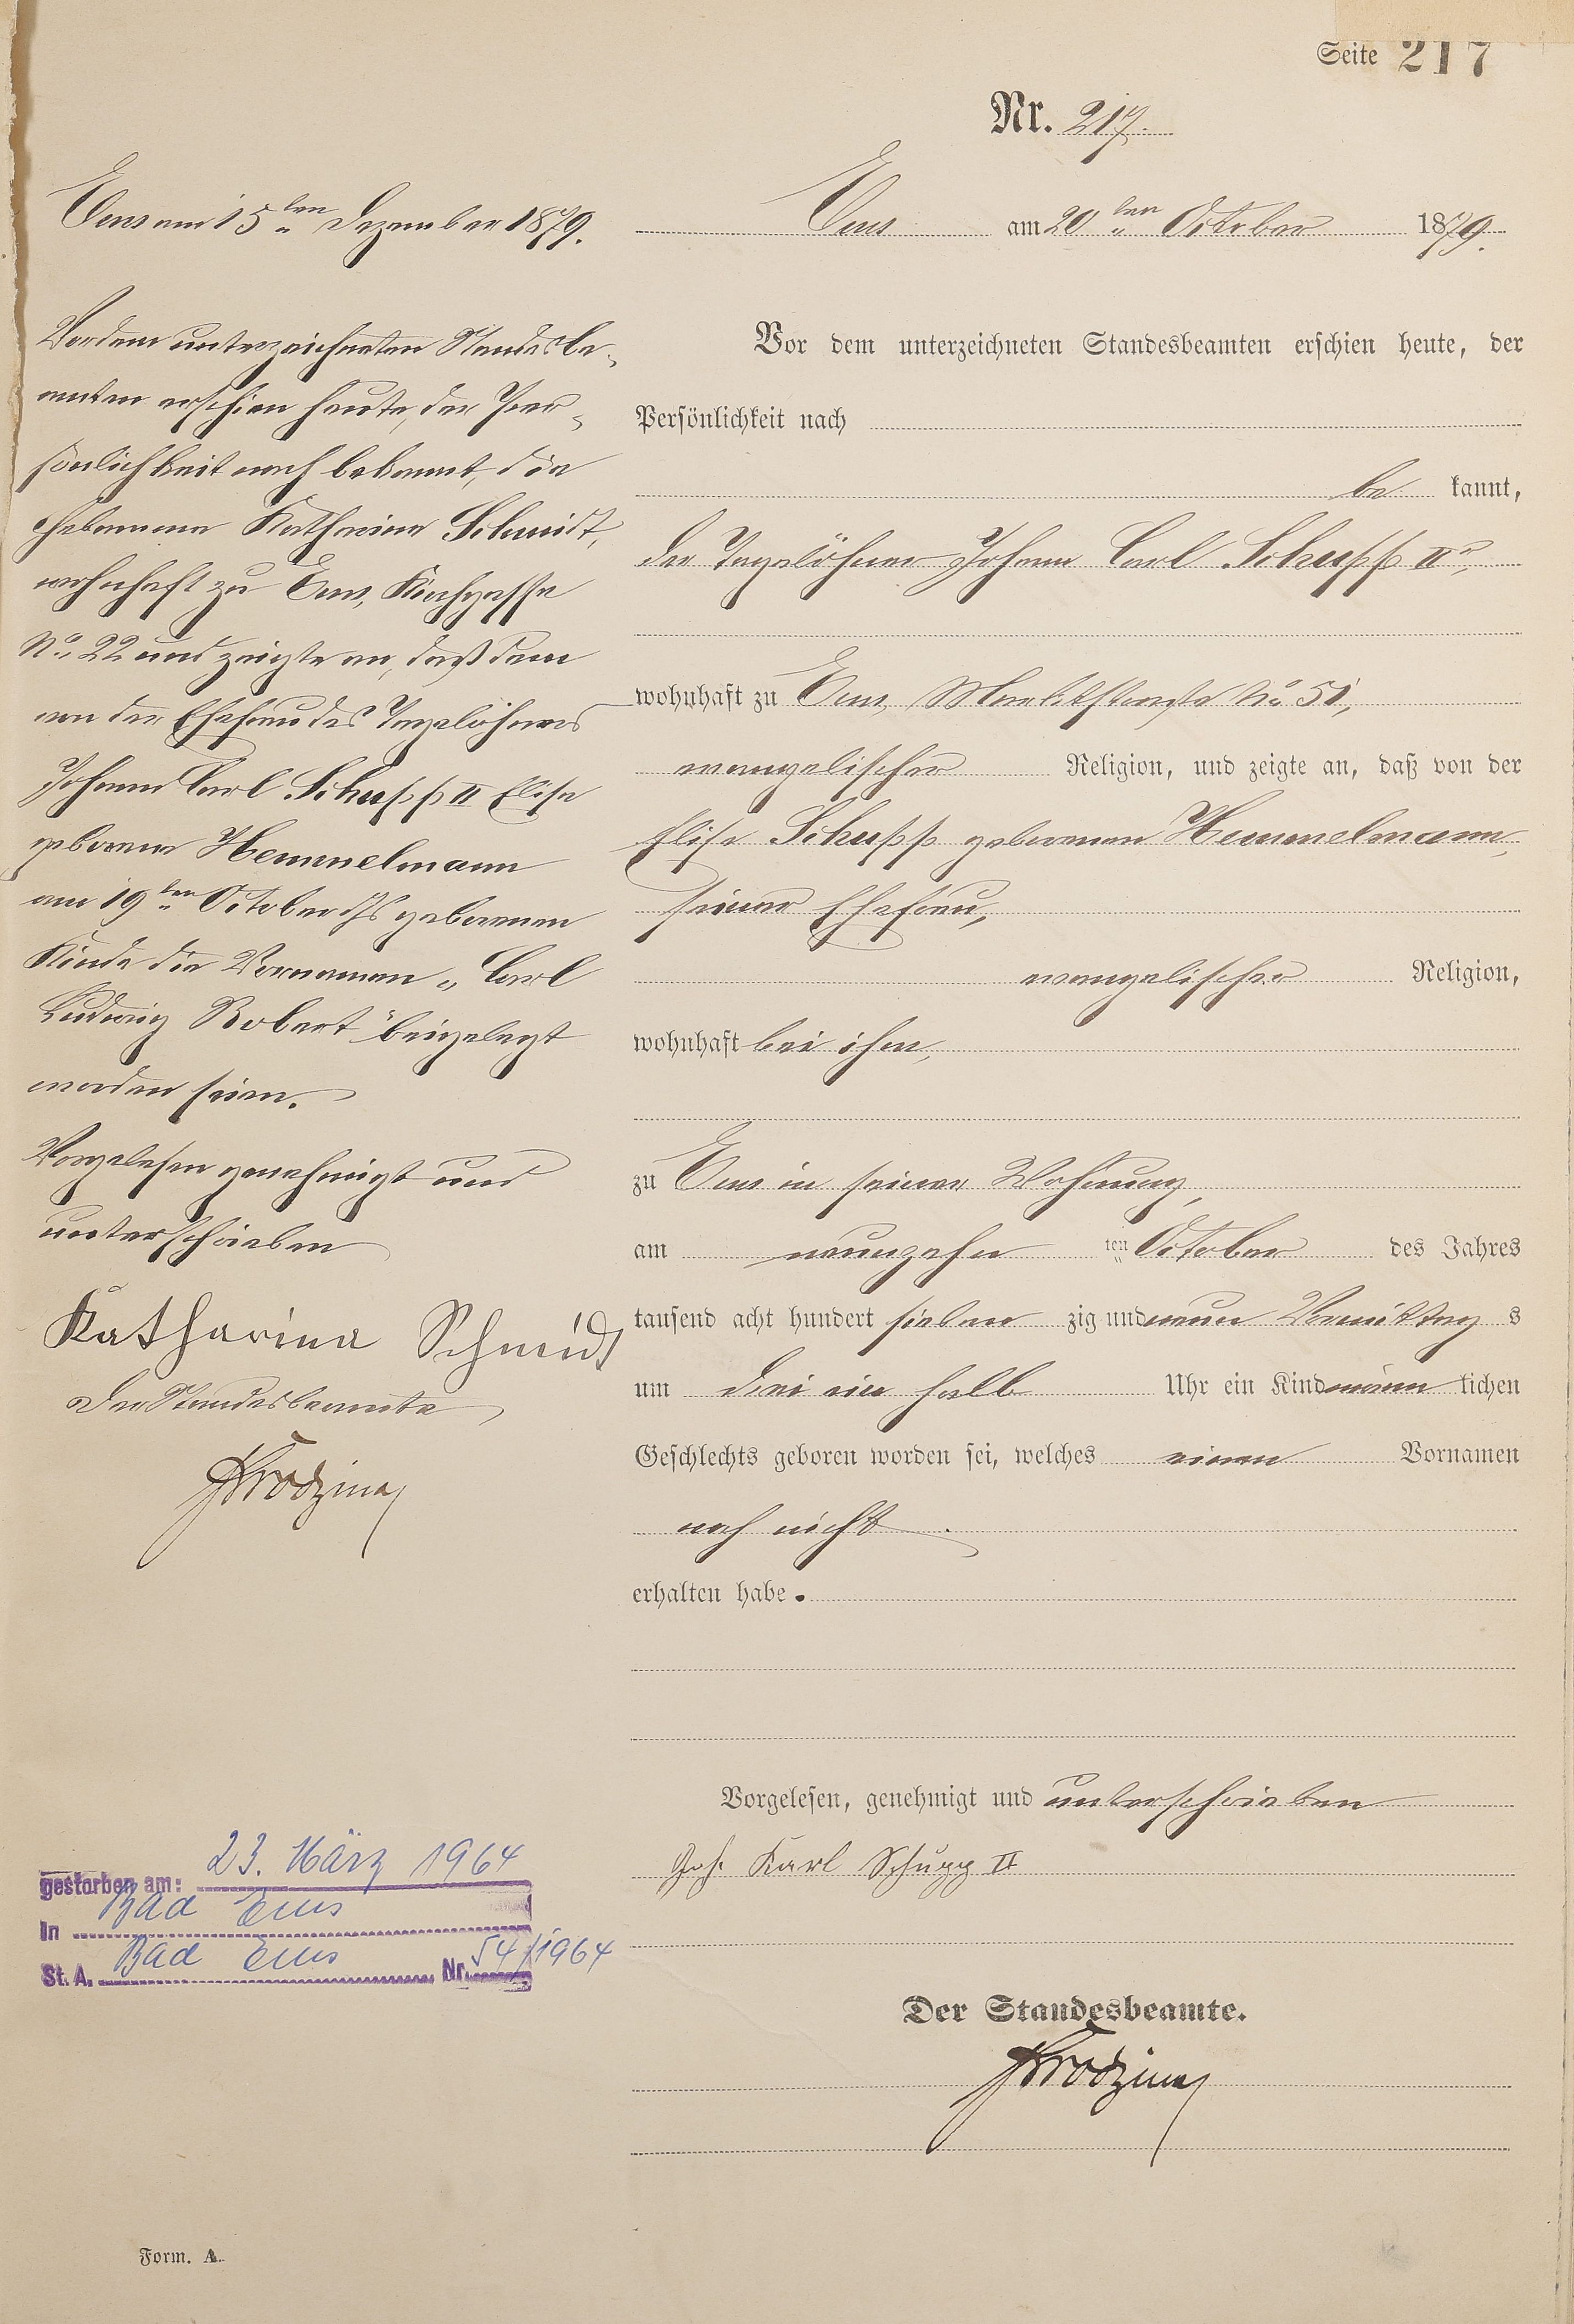 Seite 217
Nr. 217.
Ems am 20ten October 1879.
Vor dem unterzeichneten Standesbeamten erschien heute, der
Persönlichkeit nach
be kannt,
der Tagelöhner Johann Carl Schupp IIr,
wohnhaft zu Ems, Marktstraße No 51,
evangelischer Religion, und zeigte an, daß von der
Elise Schupp geborenen Hemmelmann,
seiner Ehefrau,
evangelischer Religion,
wohnhaft bei ihm,
zu Ems in seiner Wohnung,
am neunzehn ten October des Jahres
tausend acht hundert sieben zig und neun Vormittag s
um drei ein halb Uhr ein Kind männ lichen
Geschlechts geboren worden sei, welches einen Vornamen
noch nicht
erhalten habe.
Vorgelesen, genehmigt und unterschrieben
Joh. Karl Schupp II
Der Standesbeamte.
Ems am 15ten Dezember 1879.
Vor dem unterzeichneten Standesbe-
amten erschien heute, der Per-
sönlichkeit nach bekannt, die
Hebamme Katharina Schmidt,
wohnhaft zu Ems, Kirchgasse
No. 22 und zeigte an, daß dem
von der Ehefrau des Tagelöhners
Johann Carl Schupp II Elise
geborene Hemmelmann
am 19ten October ds Js geborenen
Kinde die Vornamen „Carl
Ludwig Robert" beigelegt
worden seien.
Vorgelesen genehmigt und
unterschrieben
Katharina Schmidt
Der Standesbeamte
gestorben am: 23. März 1964
In Bad Ems
St. A. Bad Ems Nr. 54/1964
Form. A.